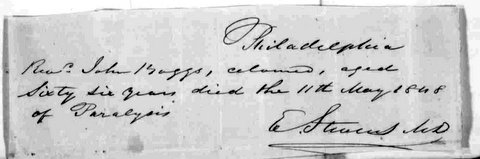 Philadelphia
Revd. John Boggs, coloured, aged
Sixty six years died the 11th May 1848
of Paralysis
E. Stevens M.D.